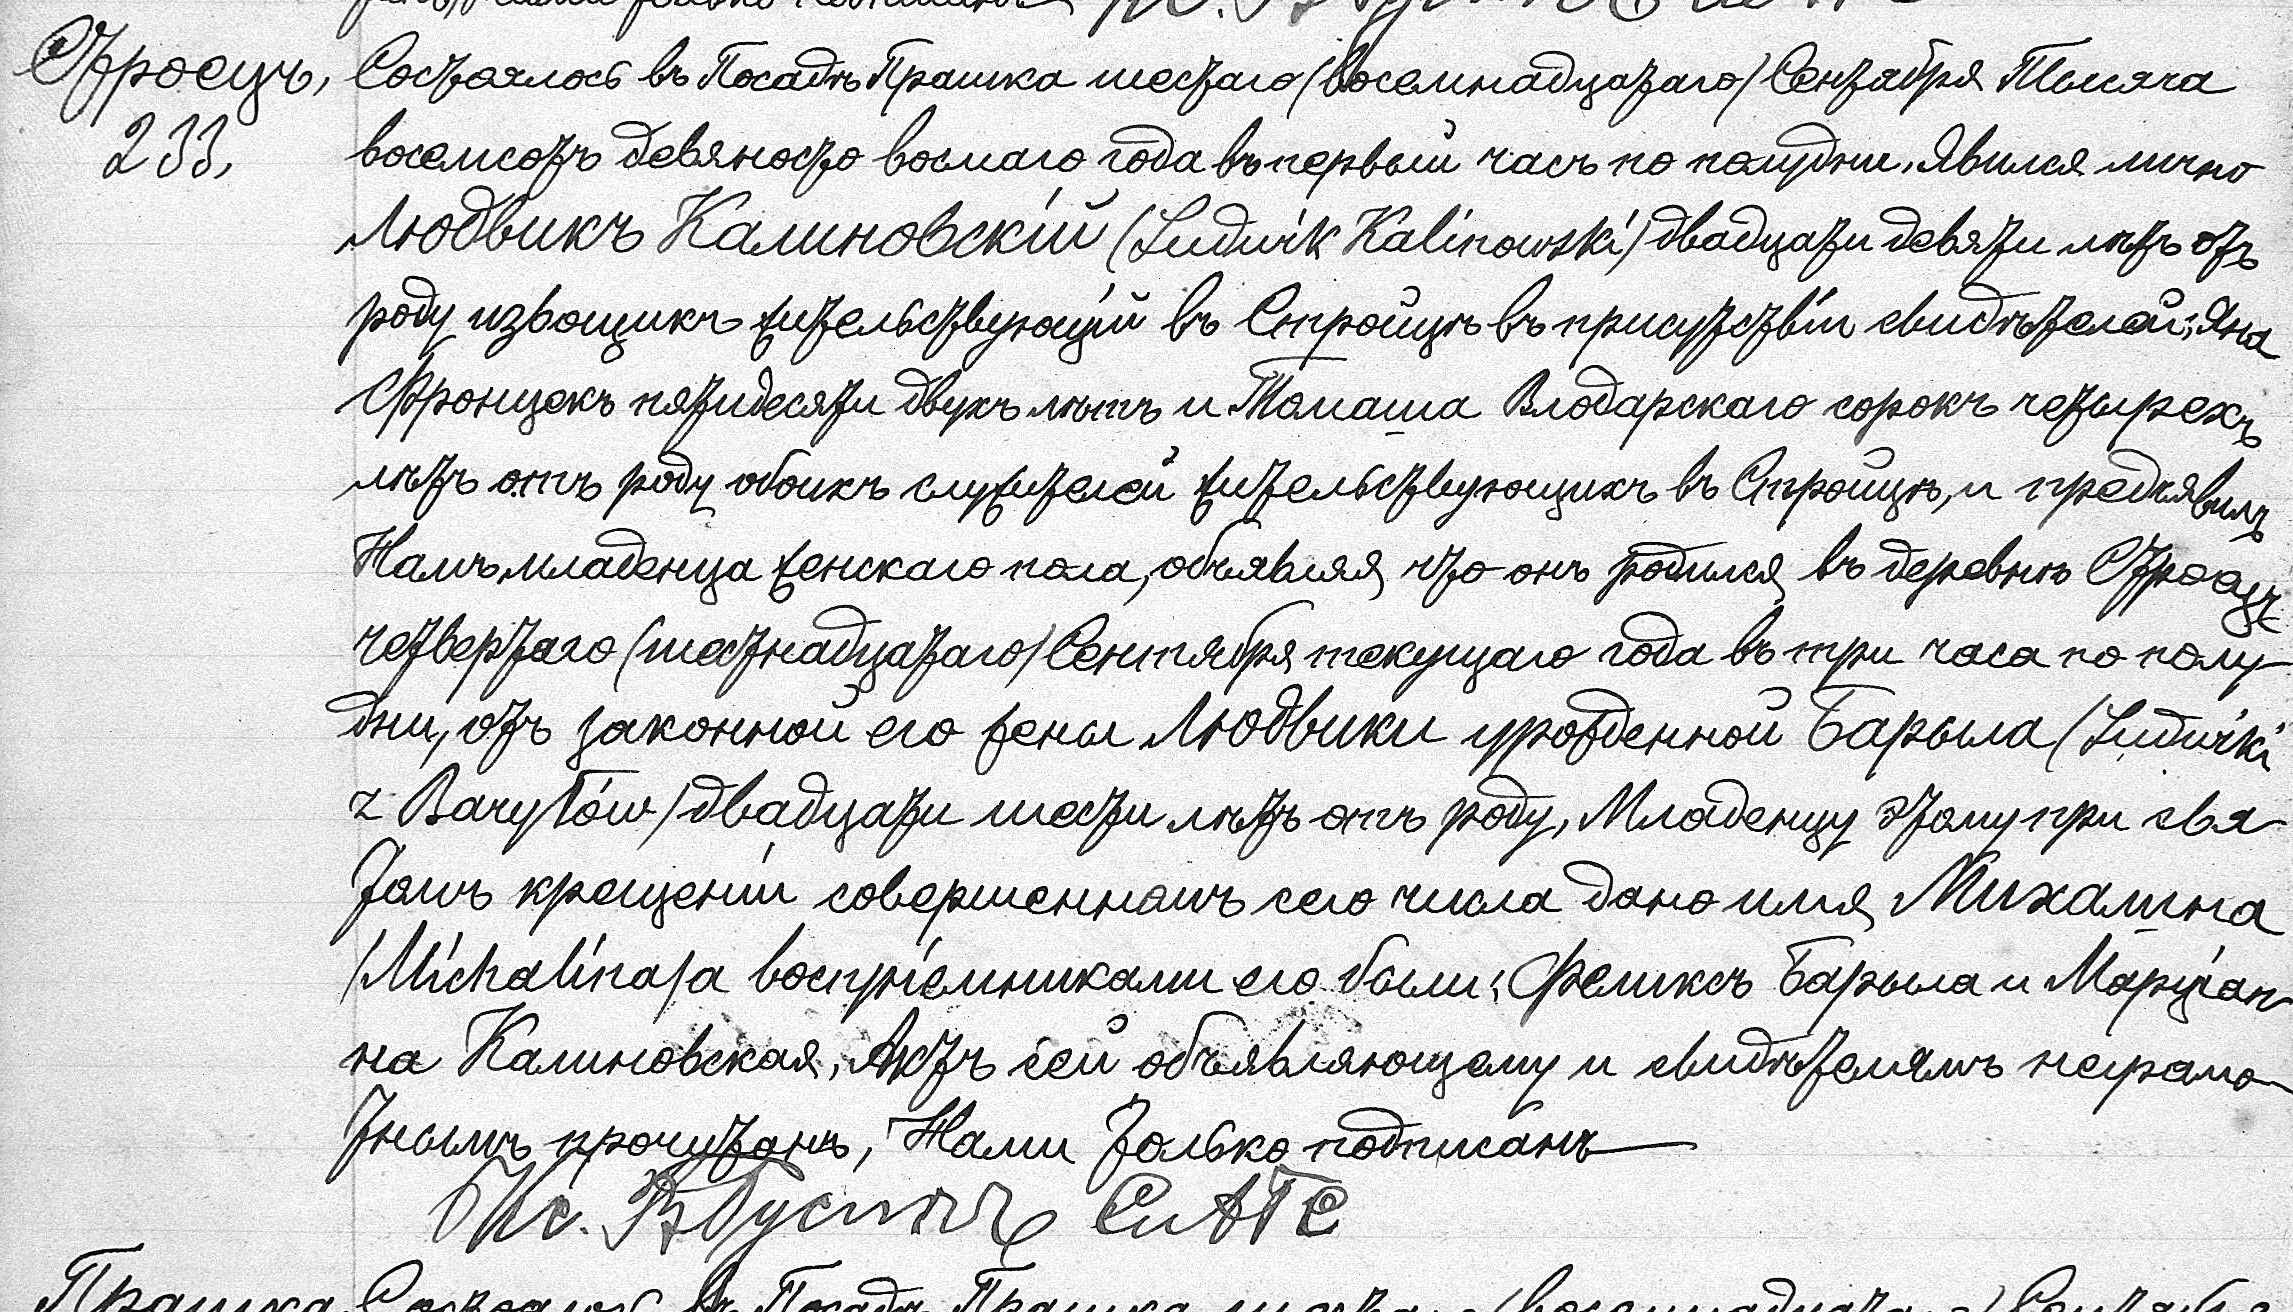 Строецъ,
233.
Состоялось въ Посадѣ Прашка шестаго (восемнадцатаго) Сентября Тысяча
восемсотъ девяносто восмаго года въ первый часъ по полудни. Явился лично
Людвикъ Калиновскій (Ludwik Kalinowski) двадцати девяти лѣтъ отъ
роду извощикъ жительствующій въ Стройцѣ въ присутствіи свидѣтелей: Яна
Фронцекъ пятидесяти двухъ лѣтъ и Томаша Влодарскаго сорокъ четырехъ
лѣтъ отъ роду обоихъ служителей жительствующихъ въ Стройцѣ, и предъявилъ
Намъ младенца женскаго пола, объявляя что онъ родился въ деревнѣ Строецъ
четвертаго (шестнадцатаго) Сентября текущаго года въ три часа по полу-
дни, отъ законной его жены Людвики урожденной Барыла (Ludwiki
z Baryłów) двадцати шести лѣтъ отъ роду, Младенцу этому при свя-
томъ крещеніи совершенномъ сего числа дано имя Михалина
(Michalina) а воспріемниками его были: Феликсъ Барыла и Маріан-
на Калиновская, Актъ сей объявляющему и свидѣтелямъ неграмо-
тнымъ прочитанъ, Нами только подписанъ
Кс.
Прашка Состоялось въ Посадѣ Прашка